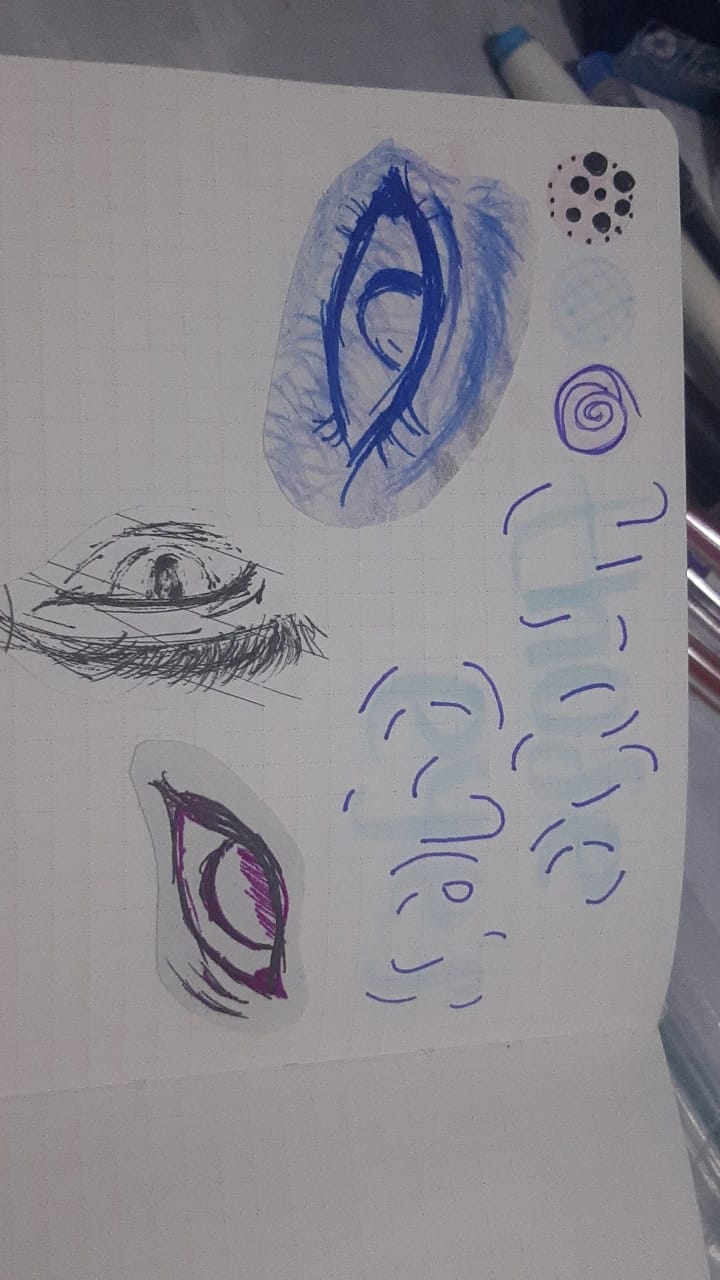 those
eyes